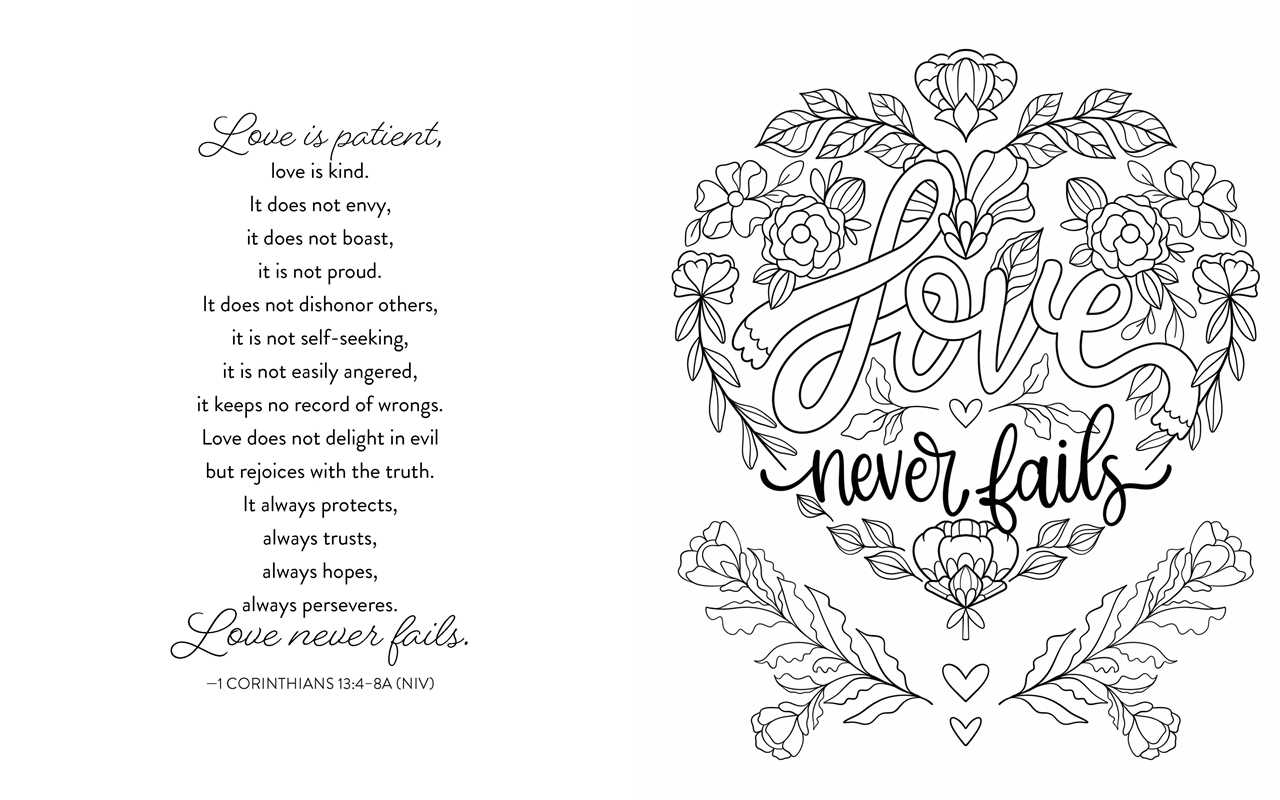 Love is patient,
love is kind.
It does not envy,
it does not boast,
it is not proud.
It does not dishonor others,
it is not self-seeking,
it is not easily angered,
it keeps no record of wrongs.
Love does not delight in evil
but rejoices with the truth.
It always protects,
always trusts,
always hopes,
always perseveres.
Love never fails.
—1 CORINTHIANS 13:4–8A (NIV)
love
never fails